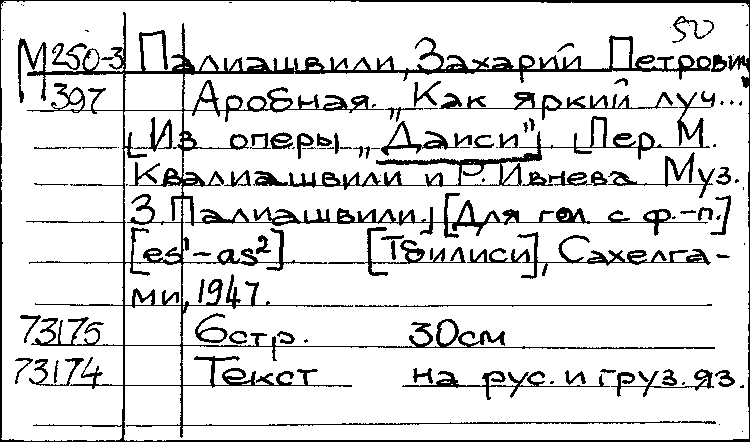 50
М250-3 Палиашвили, Захарий Петрович
397 Аробная. „Как яркий луч..."
[Из оперы „Даиси"]. [Пер. М.
Квалиашвили и Р. Ивнева. Муз.
З. Палиашвили.] [Для гол с ф.-п.]
[es¹-as²] [Тбилиси], Сахелга-
ми, 1947.
73175 6стр. 30см
73174 Текст на рус. и груз. яз.